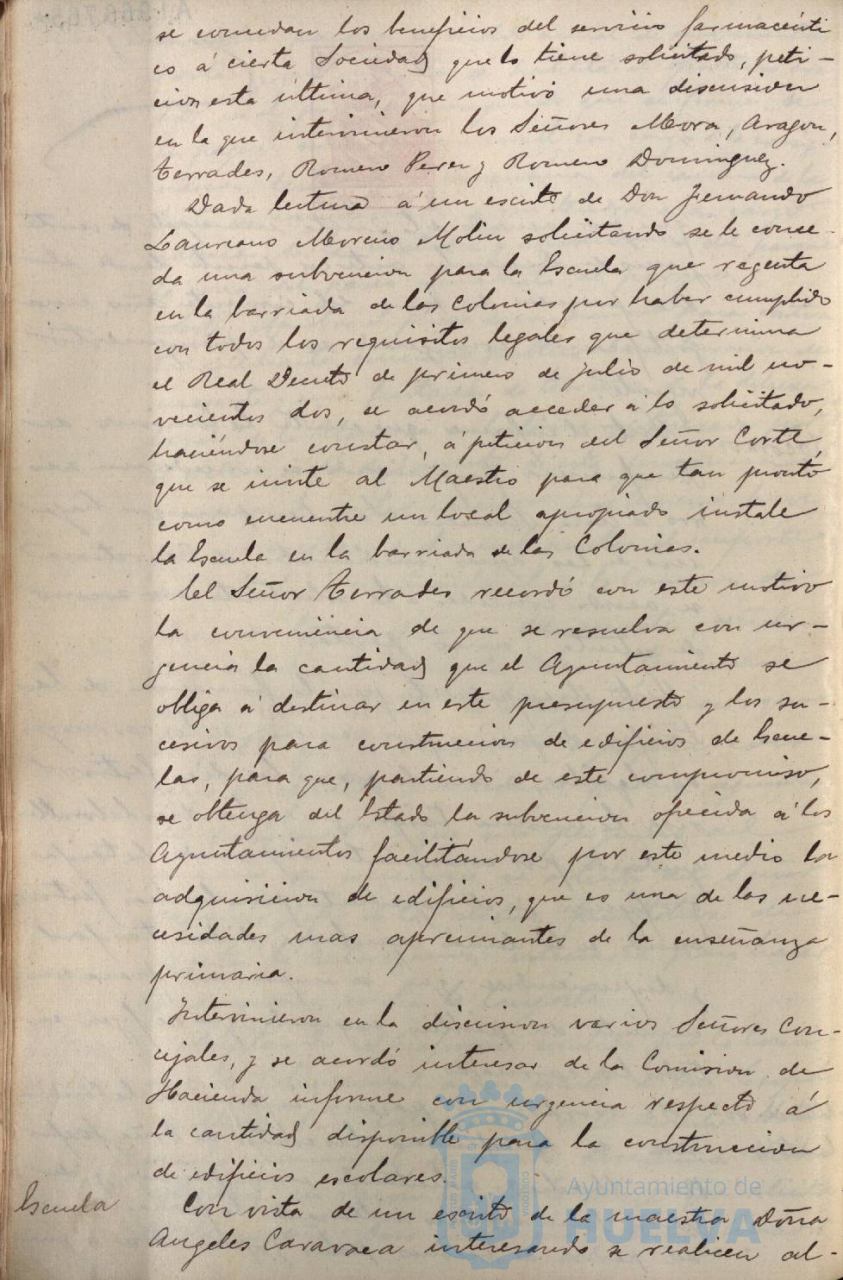 se concedan los beneficios del servicio farmacéuti
co á cierta Sociedad que lo tiene solicitado, peti-
cion esta última, que motivó una discusion
en la que intervinieron los Señores Mora, Aragon,
Terrades, Romero Perez y Romero Dominguez.
Dada lectura á un escrito de Don Fernando
Laureano Moreno Molin solicitando se le conce-
da una subvencion para la Escuela que regenta
en la barriada de las Colonias por haber cumplido
con todos los requisitos legales que determina
el Real Decreto de primero de julio de mil no-
vecientos dos, se acordó acceder á lo solicitado,
haciéndose constar, á peticion del Señor Corte,
que se invite al Maestro para que tan pronto
como encuentre un local apropiado instale
la Escuela en la barriada de las Colonias.
El Señor Terrades recordó con este motivo
la conveniencia de que se resuelva con ur-
gencia la cantidad que el Ayuntamiento se
obliga á destinar en este presupuesto y los su-
cesivos para construccion de edificios de Escue-
las, para que, partiendo de este compromiso,
se obtenga del Estado la subvencion ofrecida á los
Ayuntamientos facilitándose por este medio la
adquisicion de edificios, que es una de las ne-
cesidades mas apremiantes de la enseñanza
primaria.
Intervinieron en la discusion varios Señores Con-
cejales, y se acordó interesar de la Comision de
Hacienda informe con urgencia respecto á
la cantidad disponible para la construccion
de edificios escolares.
Escuela
Con vista de un escrito de la maestra Doña
Angeles Caravaca interesando se realicen al-
Ayuntamiento de
HUELVA